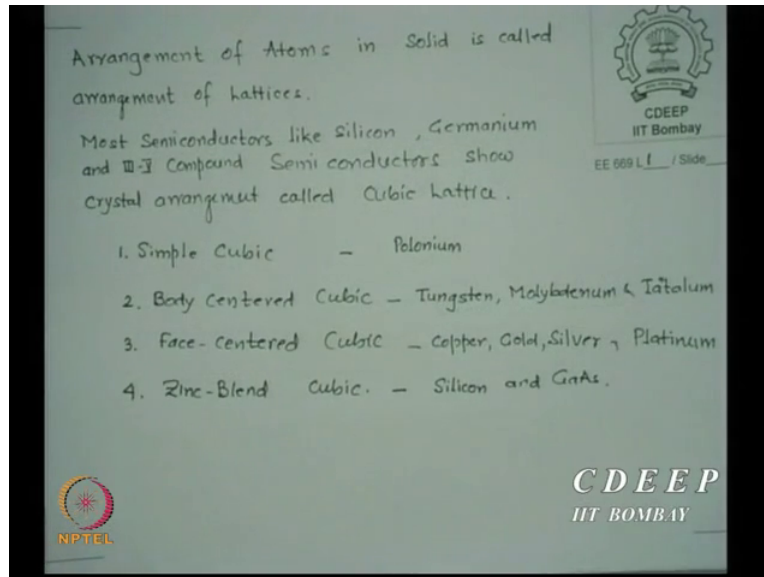 Arrangement of Atoms in Solid is called
arrangement of Lattices.
Most Semiconductors like Silicon, Germanium
and III-V Compound Semiconductors show
Crystal arrangement called Cubic Lattice.
1. Simple Cubic - Polonium
2. Body Centered Cubic - Tungsten, Molybdenum & Tatalum
3. Face-Centered Cubic - Copper, Gold, Silver, Platinum
4. Zinc-Blend Cubic. - Silicon and GaAs.
CDEEP
IIT Bombay
EE 669 L 1 / Slide
NPTEL
CDEEP
IIT BOMBAY